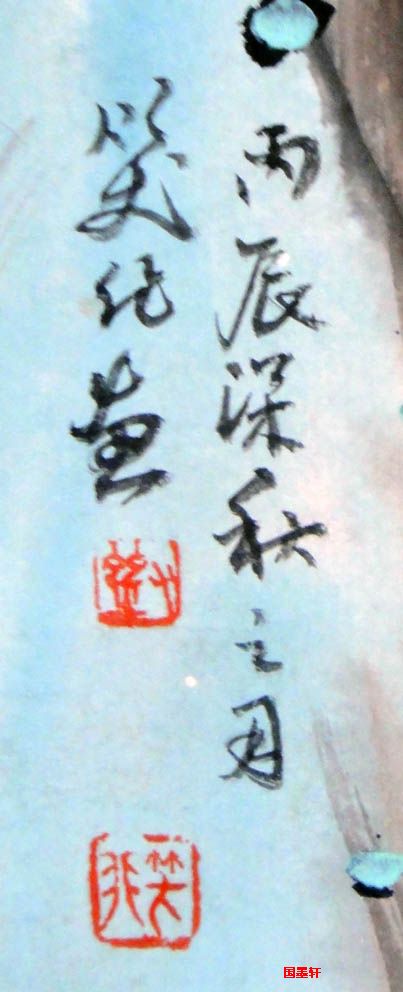 丙辰深秋之月
笑画
国墨轩